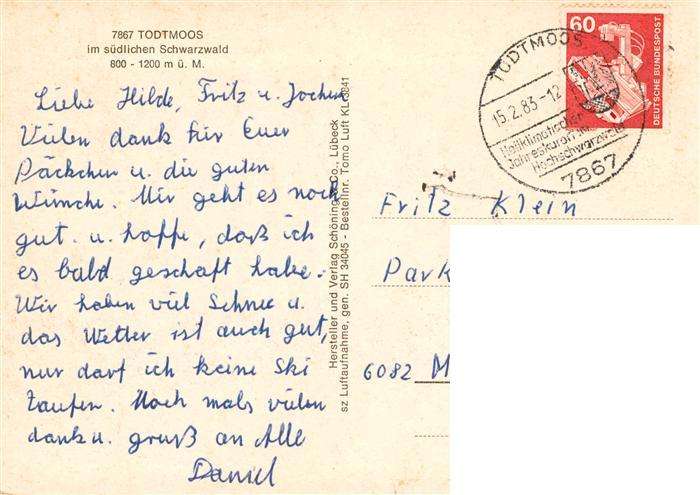 7867 TODTMOOS
im südlichen Schwarzwald
800 - 1200 m ü. M.
Liebe Hilde, Fritz u. Jochen
Vielen dank für Euer
Päckchen u. die guten
Wünsche. Mir geht es noch
gut. u. hoffe, daß ich
es bald geschaft habe.
Wir haben viel Schnee u.
das Wetter ist auch gut,
nur darf ich keine Ski
laufen. Noch mals vielen
dank u. gruß an Alle
Daniel
Hersteller und Verlag Schöning & Co., Lübeck
sz Luftaufnahme, gen. SH 34045 - Bestellnr. Tomo Luft KL
60
DEUTSCHE BUNDESPOST
TODTMOOS
15.2.83-12
Heilklimatischer
Jahreskurort im
Hochschwarzwald
7867
Fritz Klein
Park
6082 M